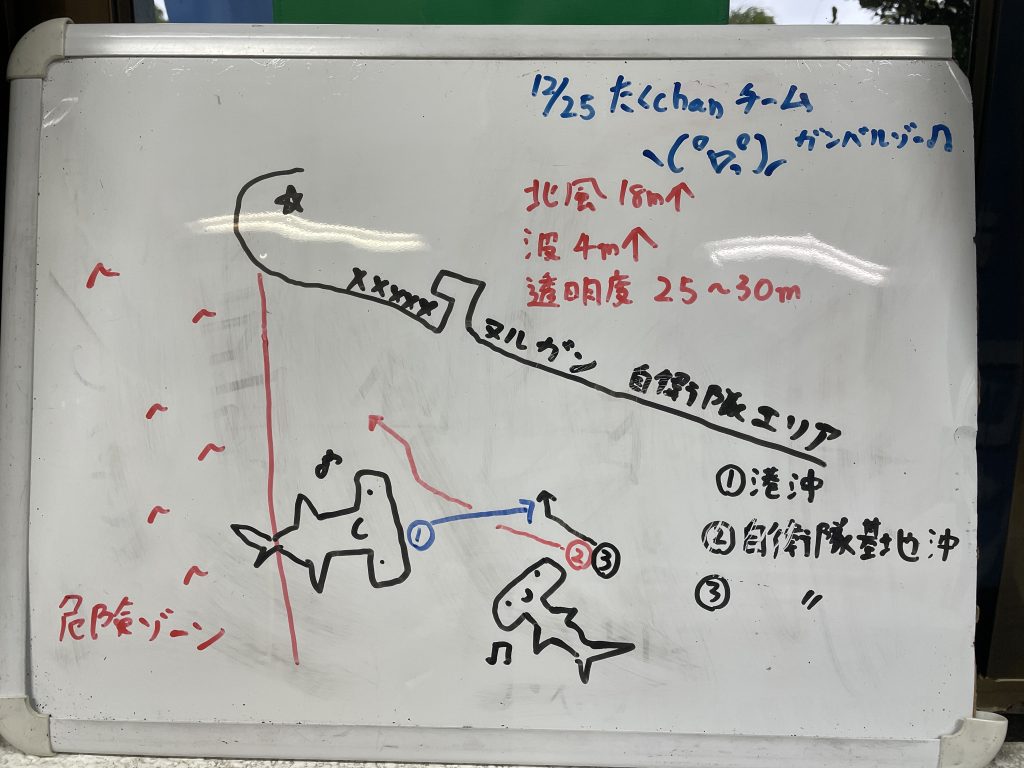 12/25 たくchanチーム
ヽ(°▽°)ノ ガンベルゾー♫
北風 18m↑
波 4m↑
透明度 25～30m
☆
×××××
ヌルガン
自衛隊エリア
① 港沖
② 自衛隊基地沖
③ 〃
♪
①
②
③
♫
危険ゾーン